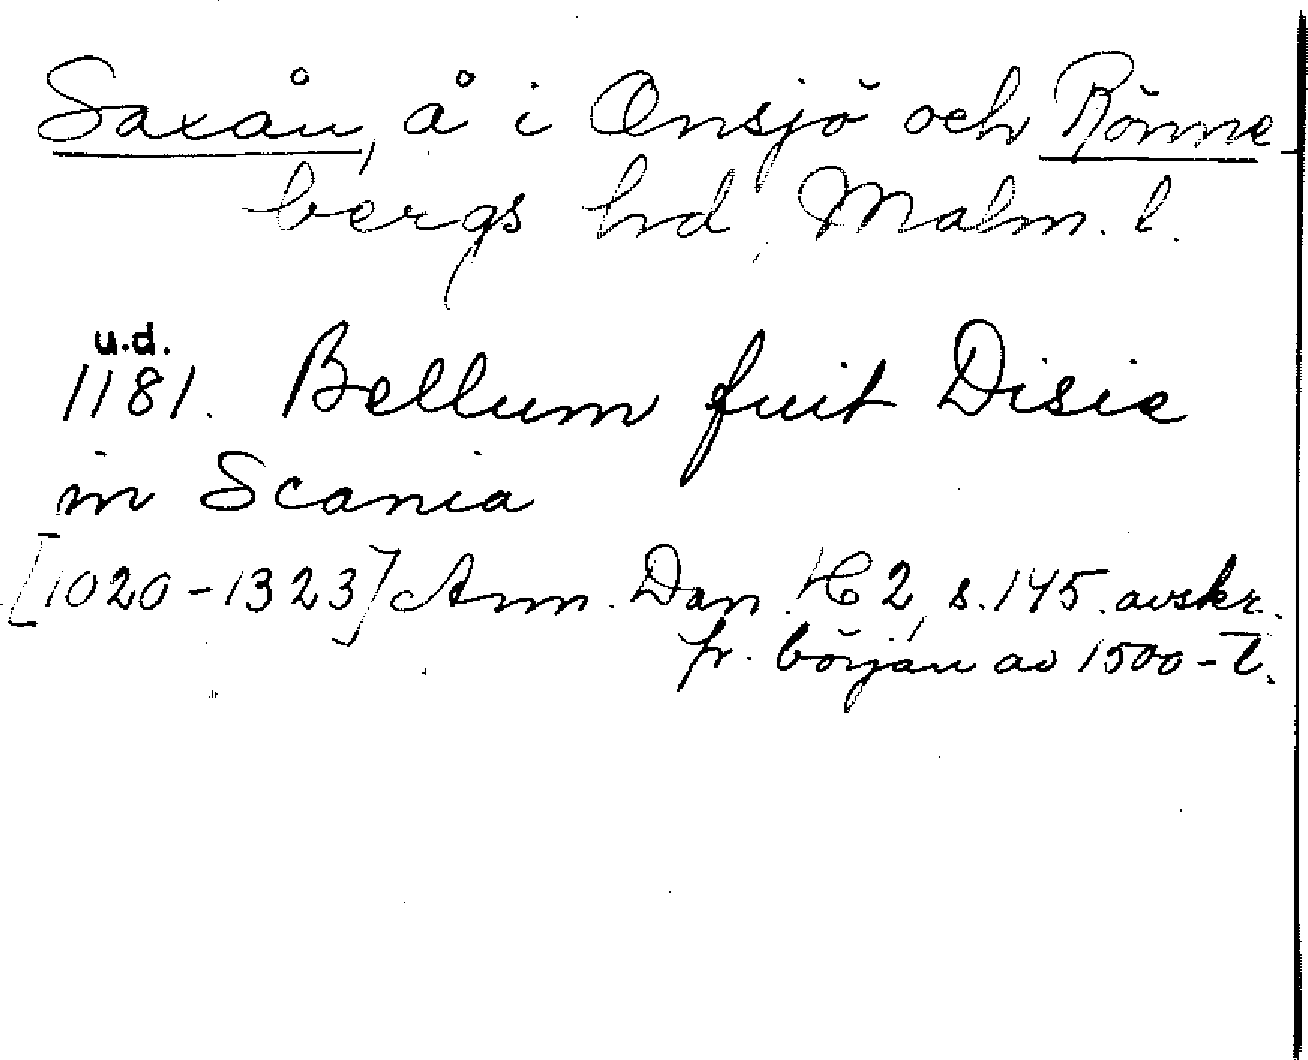 Saxån, å i Onsjö och Rönne-
bergs hd, Malm. l.
u.d.
1181. Bellum fuit Disie
in Scania
[1020-1323] Ann. Dan. H 2, s. 145. avskr.
fr. början av 1500-t.